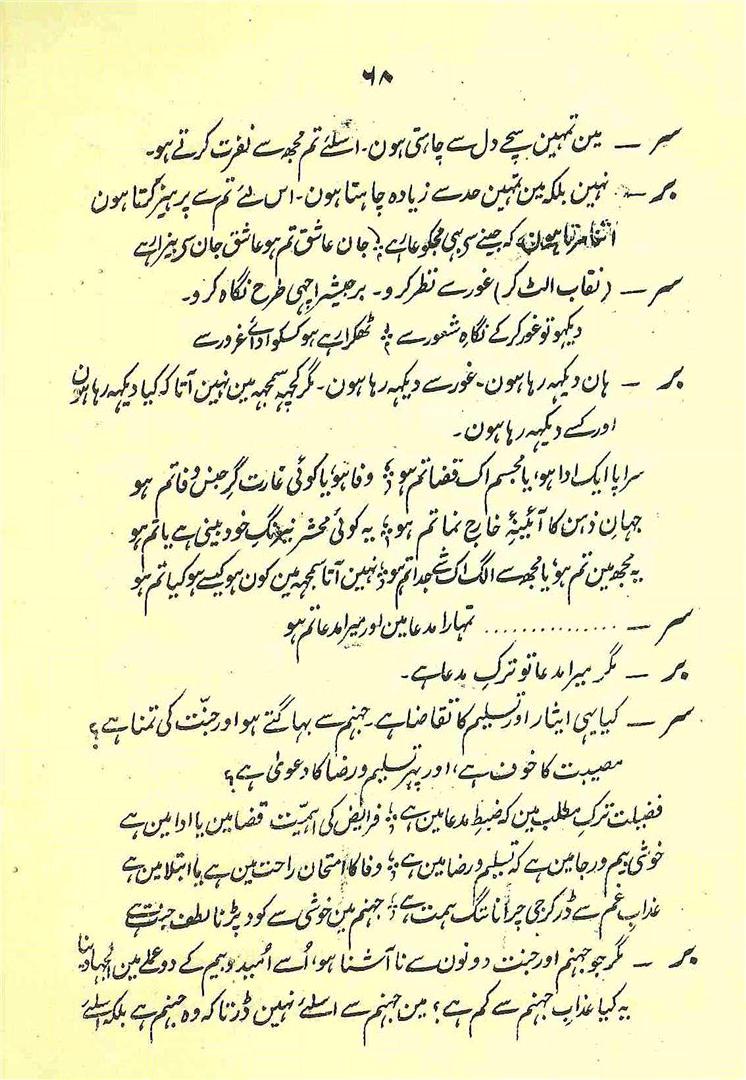 ۶۸
سر — مین تمہین سچے دل سے چاہتی ہون۔ اسلئے تم مجھ سے نفرت کرتے ہو۔
بر — نہین بلکہ مین تمہین حد سے زیادہ چاہتا ہون۔ اس لئے تم سے پرہیز کرتا ہون
اتنا مرتا ہون کہ جینے سے بھی مجکو عار ہے ؛ جان عاشق تم ہو عاشق جان سے بیزار ہے
سر — (نقاب الٹ کر) غور سے نظر کرو۔ برجیش اچھی طرح نگاہ کرو۔
دیکہو تو غور کر کے نگاہِ شعور سے ؛ ٹھکرا رہے ہو کسکو ادائے غرور سے
بر — ہان دیکہہ رہا ہون۔ غور سے دیکہہ رہا ہون۔ مگر کچہہ سمجہہ مین نہین آتا کہ کیا دیکہہ رہا ہون
اور کسے دیکہہ رہا ہون۔
سراپا ایک ادا ہو، یا مجسم اک قضا تم ہو ؛ وفا ہو، یا کوئی غارت گرِ جنس وفا تم ہو
جہانِ ذہن کا آئینۂ خارج نما تم ہو ؛ یہ کوئی محشر نیرنگِ خود بینی ہے یا تم ہو
یہ مجھ مین تم ہو، یا مجھ سے الگ اک شے جدا تم ہو ؛ نہین آتا سمجہہ مین کون ہو کیسے ہو کیا تم ہو
سر — .............. تمہارا مدعا مین اور میرا مدعا تم ہو
بر — مگر میرا مدعا تو ترکِ مدعا ہے۔
سر — کیا یہی ایثار اور تسلیم کا تقاضا ہے۔ جہنم سے بہاگتے ہو اور جنّت کی تمنا ہے؟
مصیبت کا خوف ہے، اور پہر تسلیم و رضا کا دعویٰ ہے؟
فضیلت ترکِ مطلب مین کہ ضبطِ مدعا مین ہے ؛ فرایض کی اہمیّت قضا مین یا ادا مین ہے
خوشی بیم و رجا مین ہے کہ تسلیم و رضا مین ہے ؛ وفا کا امتحان راحت مین ہے یا ابتلا مین ہے
عذابِ غم سے ڈر کر جی چرانا ننگ ہمت ہے ؛ جہنم مین خوشی سے کود پڑنا لطف جنت ہے
بر — مگر جو جہنم اور جنت دونون سے نا آشنا ہو، اُسے اُمید و بیم کے دو عملے مین الجہا دینا
یہ کیا عذابِ جہنم سے کم ہے؟ مین جہنم سے اسلئے نہین ڈرتا کہ وہ جہنم ہے بلکہ اسلئے